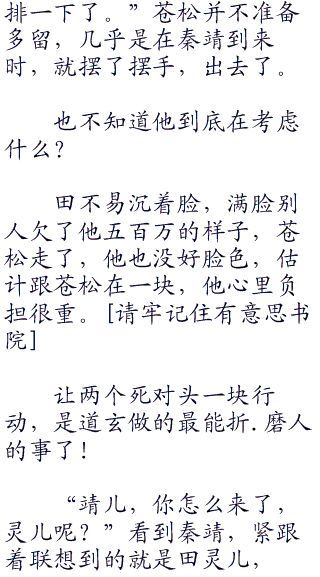 排一下了。”苍松并不准备
多留，几乎是在秦靖到来
时，就摆了摆手，出去了。
也不知道他到底在考虑
什么？
田不易沉着脸，满脸别
人欠了他五百万的样子，苍
松走了，他也没好脸色，估
计跟苍松在一块，他心里负
担很重。[请牢记住有意思书
院]
让两个死对头一块行
动，是道玄做的最能折.磨人
的事了！
“靖儿，你怎么来了，
灵儿呢？”看到秦靖，紧跟
着联想到的就是田灵儿，